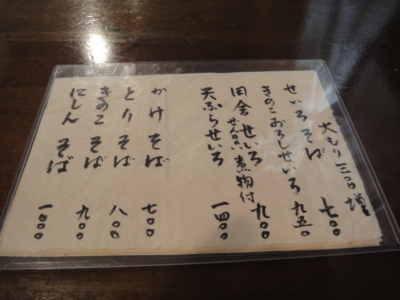 大もり三〇〇増
せいろそば 七〇〇
きのこおろしせいろ 九五〇
田舎せいろ 九〇〇
ぜんまい煮物付
天ぷらせいろ 一四〇〇
かけそば 七〇〇
とりそば 八〇〇
きのこそば 九〇〇
にしんそば 一〇〇〇